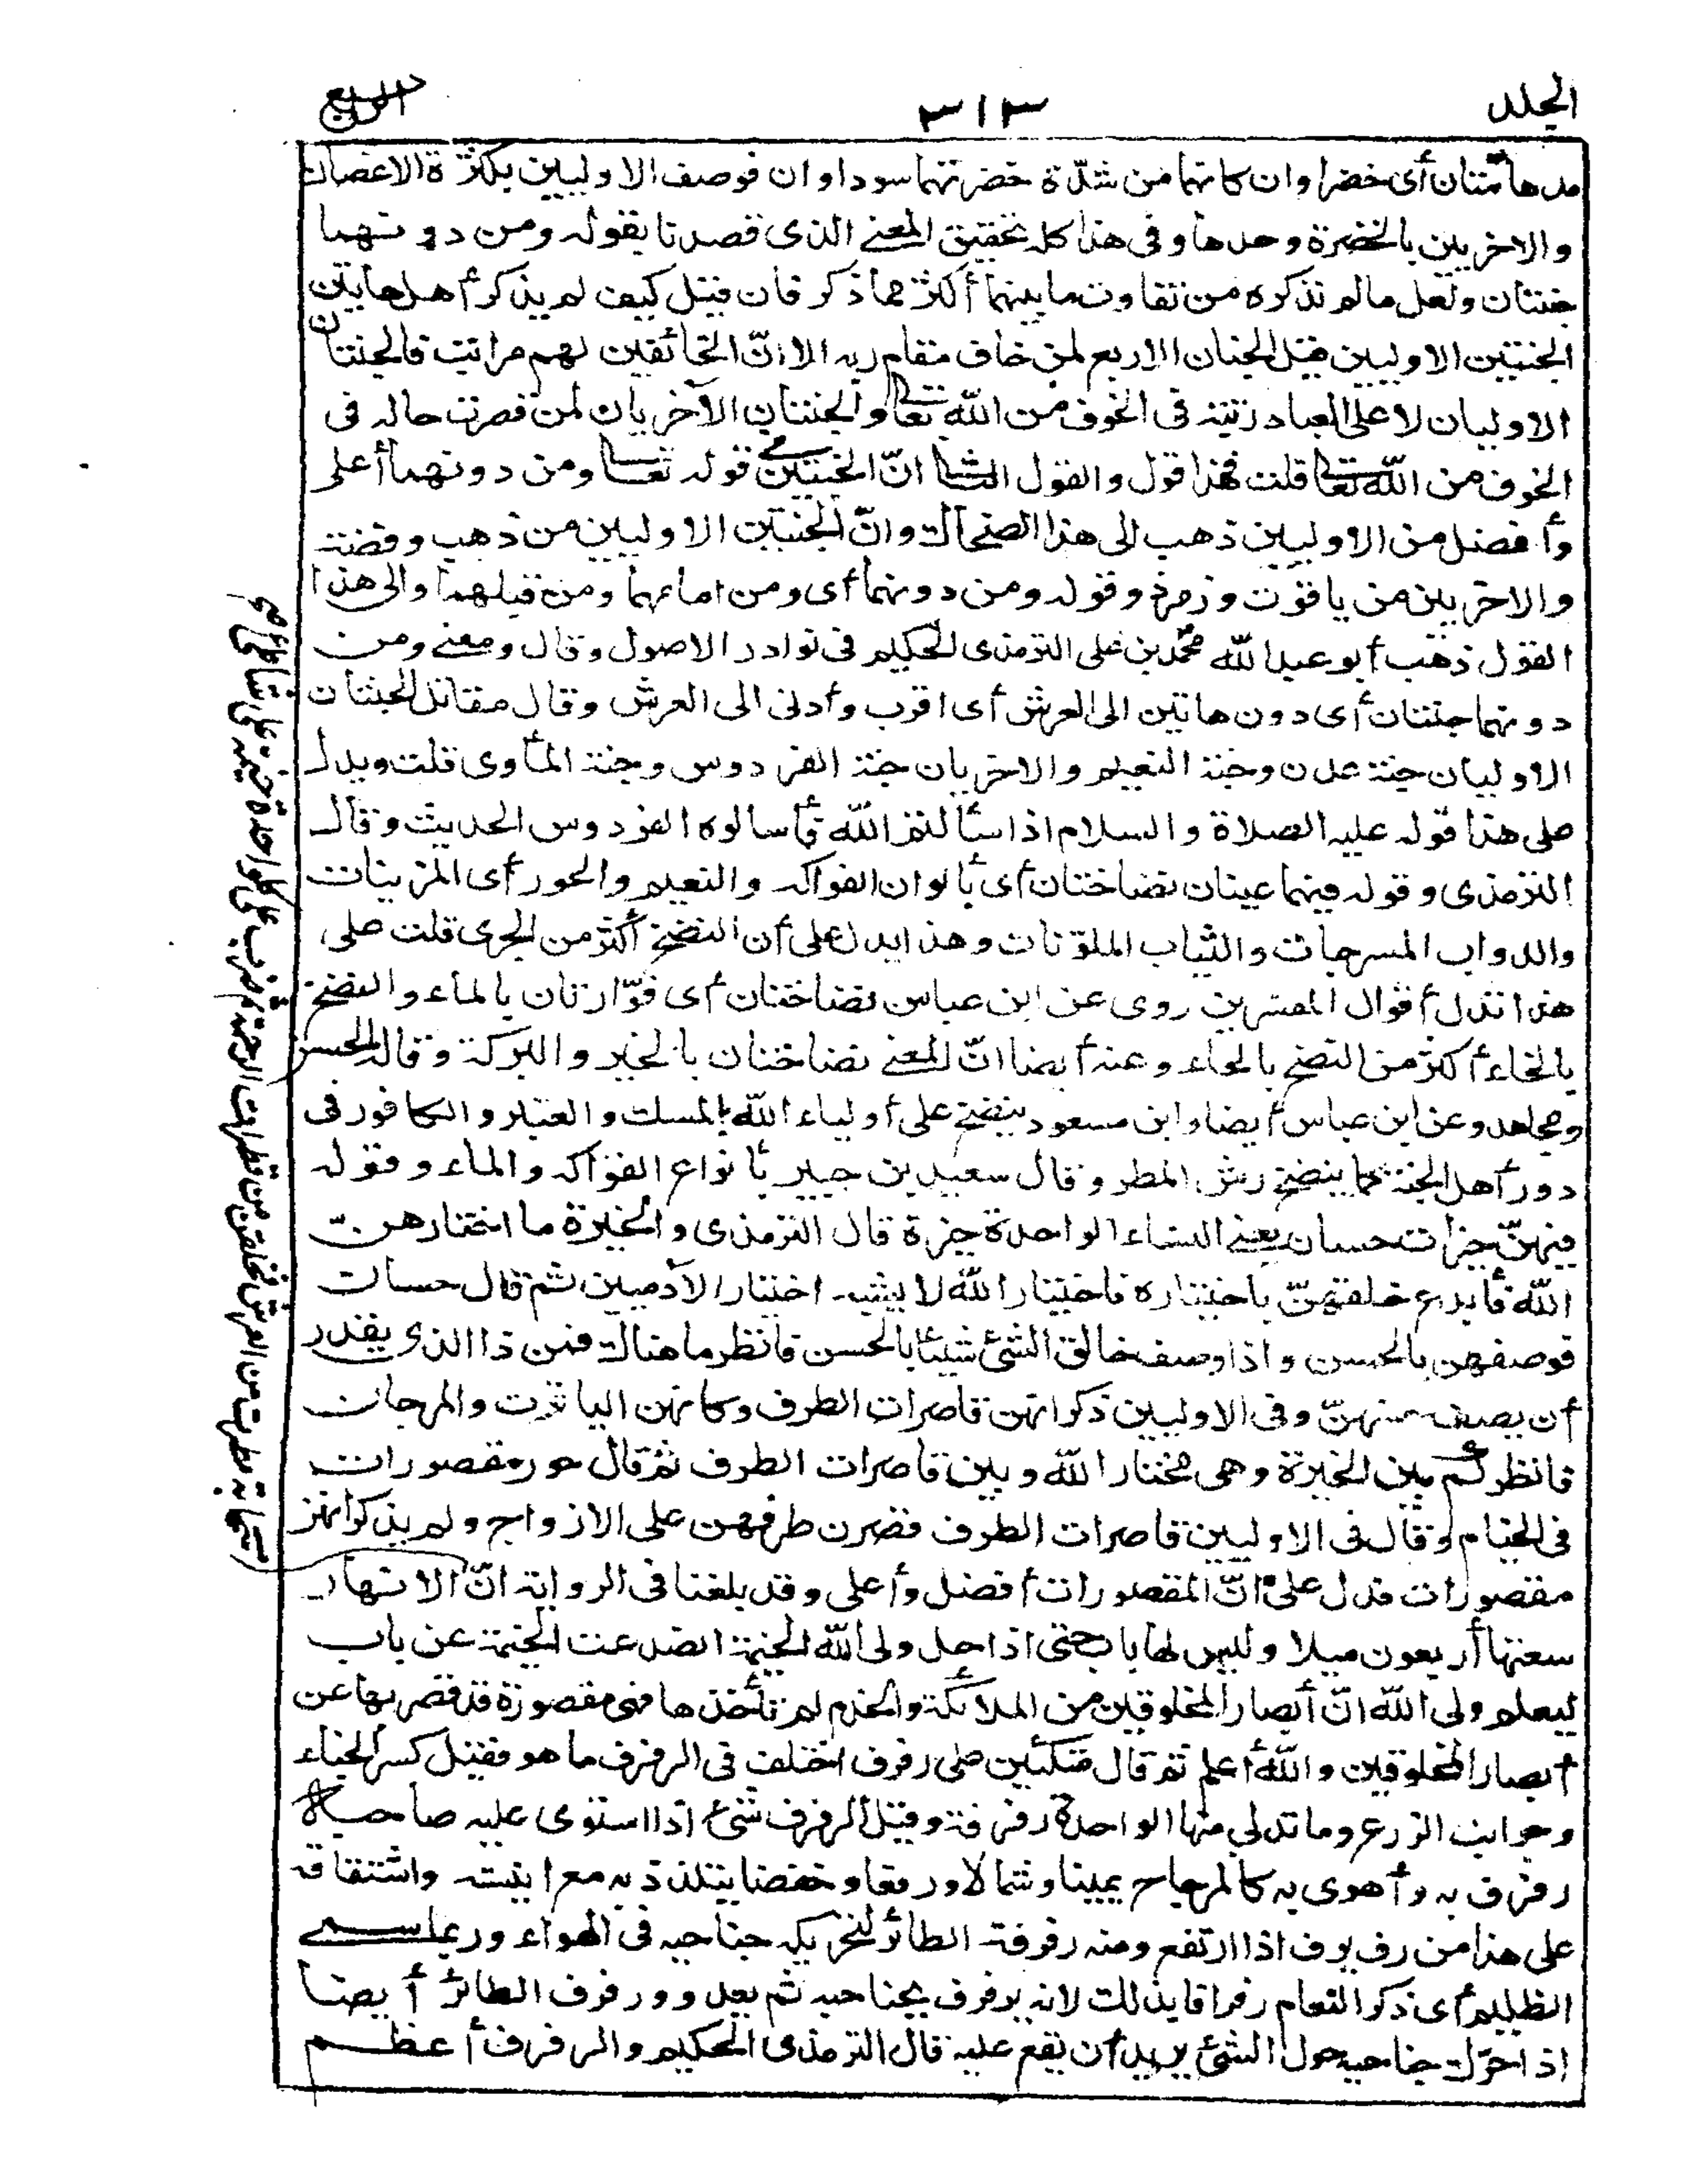 المجلد
٣١٣
الرابع
مدهامّتان أى خضراوان كانهما من شدّة خضرتهما سوداوان فوصف الاوليين بكثرة الاغصان
والاخريين بالخضرة وحدها وفى هذا كله تحقيق المعنى الذى قصدنا بقوله ومن دونهما
جنتان ولعل مالم نذكره من تفاوت ما بينهما أكثر مما ذكر فان قيل كيف لم يذكر أهل هاتين
الجنتين الاوليين قيل الجنان الاربع لمن خاف مقام ربه الا انّ الخائفين لهم مراتب فالجنتان
الاوليان لاعلى العباد رتبة فى الخوف من الله تعالى والجنتان الآخريان لمن قصرت حاله فى
الخوف من الله تعالى قلت فهذا قول والقول الثانى انّ الجنتين فى قوله تعالى ومن دونهما أعلى
وأفضل من الاوليين ذهب الى هذا الضحاك وانّ الجنتين الاوليين من ذهب وفضة
والاخريين من ياقوت وزمرذ وقوله ومن دونهما أى ومن امامهما ومن قبلهما والى هذا
القول ذهب أبو عبد الله محمد بن على الترمذى الحكيم فى نوادر الاصول وقال ومعنى ومن
دونهما جنتان أى دون هاتين الى العرش أى اقرب وأدنى الى العرش وقال مقاتل الجنتان
الاوليان جنة عدن وجنة النعيم والاخريان جنة الفردوس وجنة المأوى قلت ويدل
على هذا قوله عليه الصلاة والسلام اذا سألتم الله فأسالوه الفردوس الحديث وقال
الترمذى وقوله فيهما عينان نضاختان أى بألوان الفواكه والنعيم والحور أى المزينات
والدواب المسرجات والثياب الملوّنات وهذا يدل على أن النضخ أكثر من الجرى قلت على
هذا تدل أقوال المفسرين روى عن ابن عباس نضاختان أى فوّارتان بالماء والنضخ
بالخاء أكثر من النضح بالحاء وعنه أيضا انّ المعنى نضاختان بالخير والبركة وقاله الحسن
ومجاهد وعن ابن عباس أيضا وابن مسعود ينضخ على أولياء الله بالمسك والعنبر والكافور فى
دور أهل الجنة كما ينضخ رش المطر وقال سعيد بن جبير بأنواع الفواكه والماء وقوله
فيهنّ خيرات حسان يعنى النساء الواحدة خيرة قال الترمذى والخيرة ما اختارهنّ
الله فأبدع خلقهنّ باختياره فاختيار الله لا يشبه اختيار الآدميين ثم قال حسان
فوصفهن بالحسن واذا وصف خالق الشئ شيئا بالحسن فانظر ما هناك فمن ذا الذى يقدر
أن يصف حسنهنّ وفى الاوليين ذكر انهن قاصرات الطرف وكانهن الياقوت والمرجان
فانظر كم بين الخيرة وهى مختار الله وبين قاصرات الطرف ثم قال حور مقصورات
فى الخيام وقال فى الاوليين قاصرات الطرف قصرن طرفهن على الازواج ولم يذكر انهنّ
مقصورات فدل على انّ المقصورات أفضل وأعلى وقد بلغنا فى الرواية انّ الانهار
سعتها أربعون ميلا وليس لها باب حتى اذا حل ولى الله الخيمة انصدعت الخيمة عن باب
ليعلم ولى الله انّ أبصار المخلوقين من الملائكة والخدم لم تأخذها فهى مقصورة قد قصر بها عن
أبصار المخلوقين والله أعلم ثم قال متكئين على رفرف اختلف فى الرفرف ما هو فقيل كسر الخباء
وجوانب الزرع وما تدلى منها الواحدة رفرفة وقيل الرفرف شئ اذا استوى عليه صاحبه
رفرف به وأهوى به كالمرجاح يمينا وشمالا ورفعا وخفضا يتلذذ به مع انيسته واشتقاقه
على هذا من رف يرف اذا ارتفع ومنه رفرفة الطائر لتحريكه جناحيه فى الهواء وربما سمى
الظليم أى ذكر النعام رفرافا بذلك لانه يرفرف بجناحيه ثم يعدو ورفرف الطائر أيضا
اذا حرّك جناحيه حول الشئ يريد أن يقع عليه قال الترمذى الحكيم والرفرف أعظم
سحابة مطرت من العرش فخلقن من قطرات الرحمة وضرب على كل واحدة خيمة على شاطئ